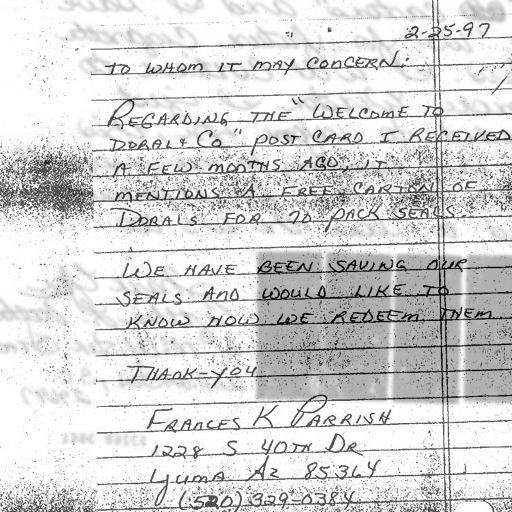 2-25-97
TO WHOM IT MAY CONCERN:
REGARDING THE "WELCOME TO
DORAL & CO" POST CARD I RECEIVED
A FEW MONTHS AGO, IT
MENTIONS A FREE CARTON OF
DORALS FOR 70 PACK SEALS.
WE HAVE BEEN SAVING OUR
SEALS AND WOULD LIKE TO
KNOW HOW WE REDEEM THEM.
THANK-YOU
FRANCES K PARRISH
1228 S 40TH DR
YUMA AZ 85364
(520) 329-0384